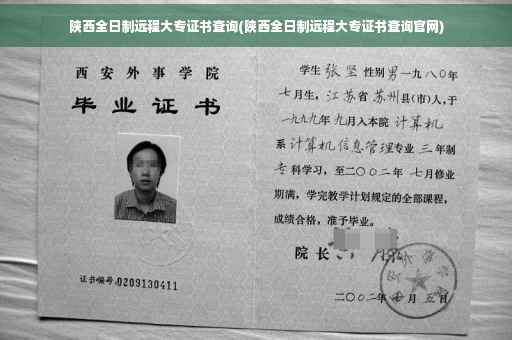 陕西全日制远程大专证书查询(陕西全日制远程大专证书查询官网)
西安外事学院
毕业证书
证书编号:0209130411
学生 张坚 性别 男 一九八〇年
七月生，江苏省 苏州县(市)人,于
一九九九年 九月入本院 计算机
系 计算机信息管理专业 三 年制
专科学习，至二〇〇二年 七月修业
期满，学完教学计划规定的全部课程，
成绩合格，准予毕业。
院长
二〇〇二年 月 五日